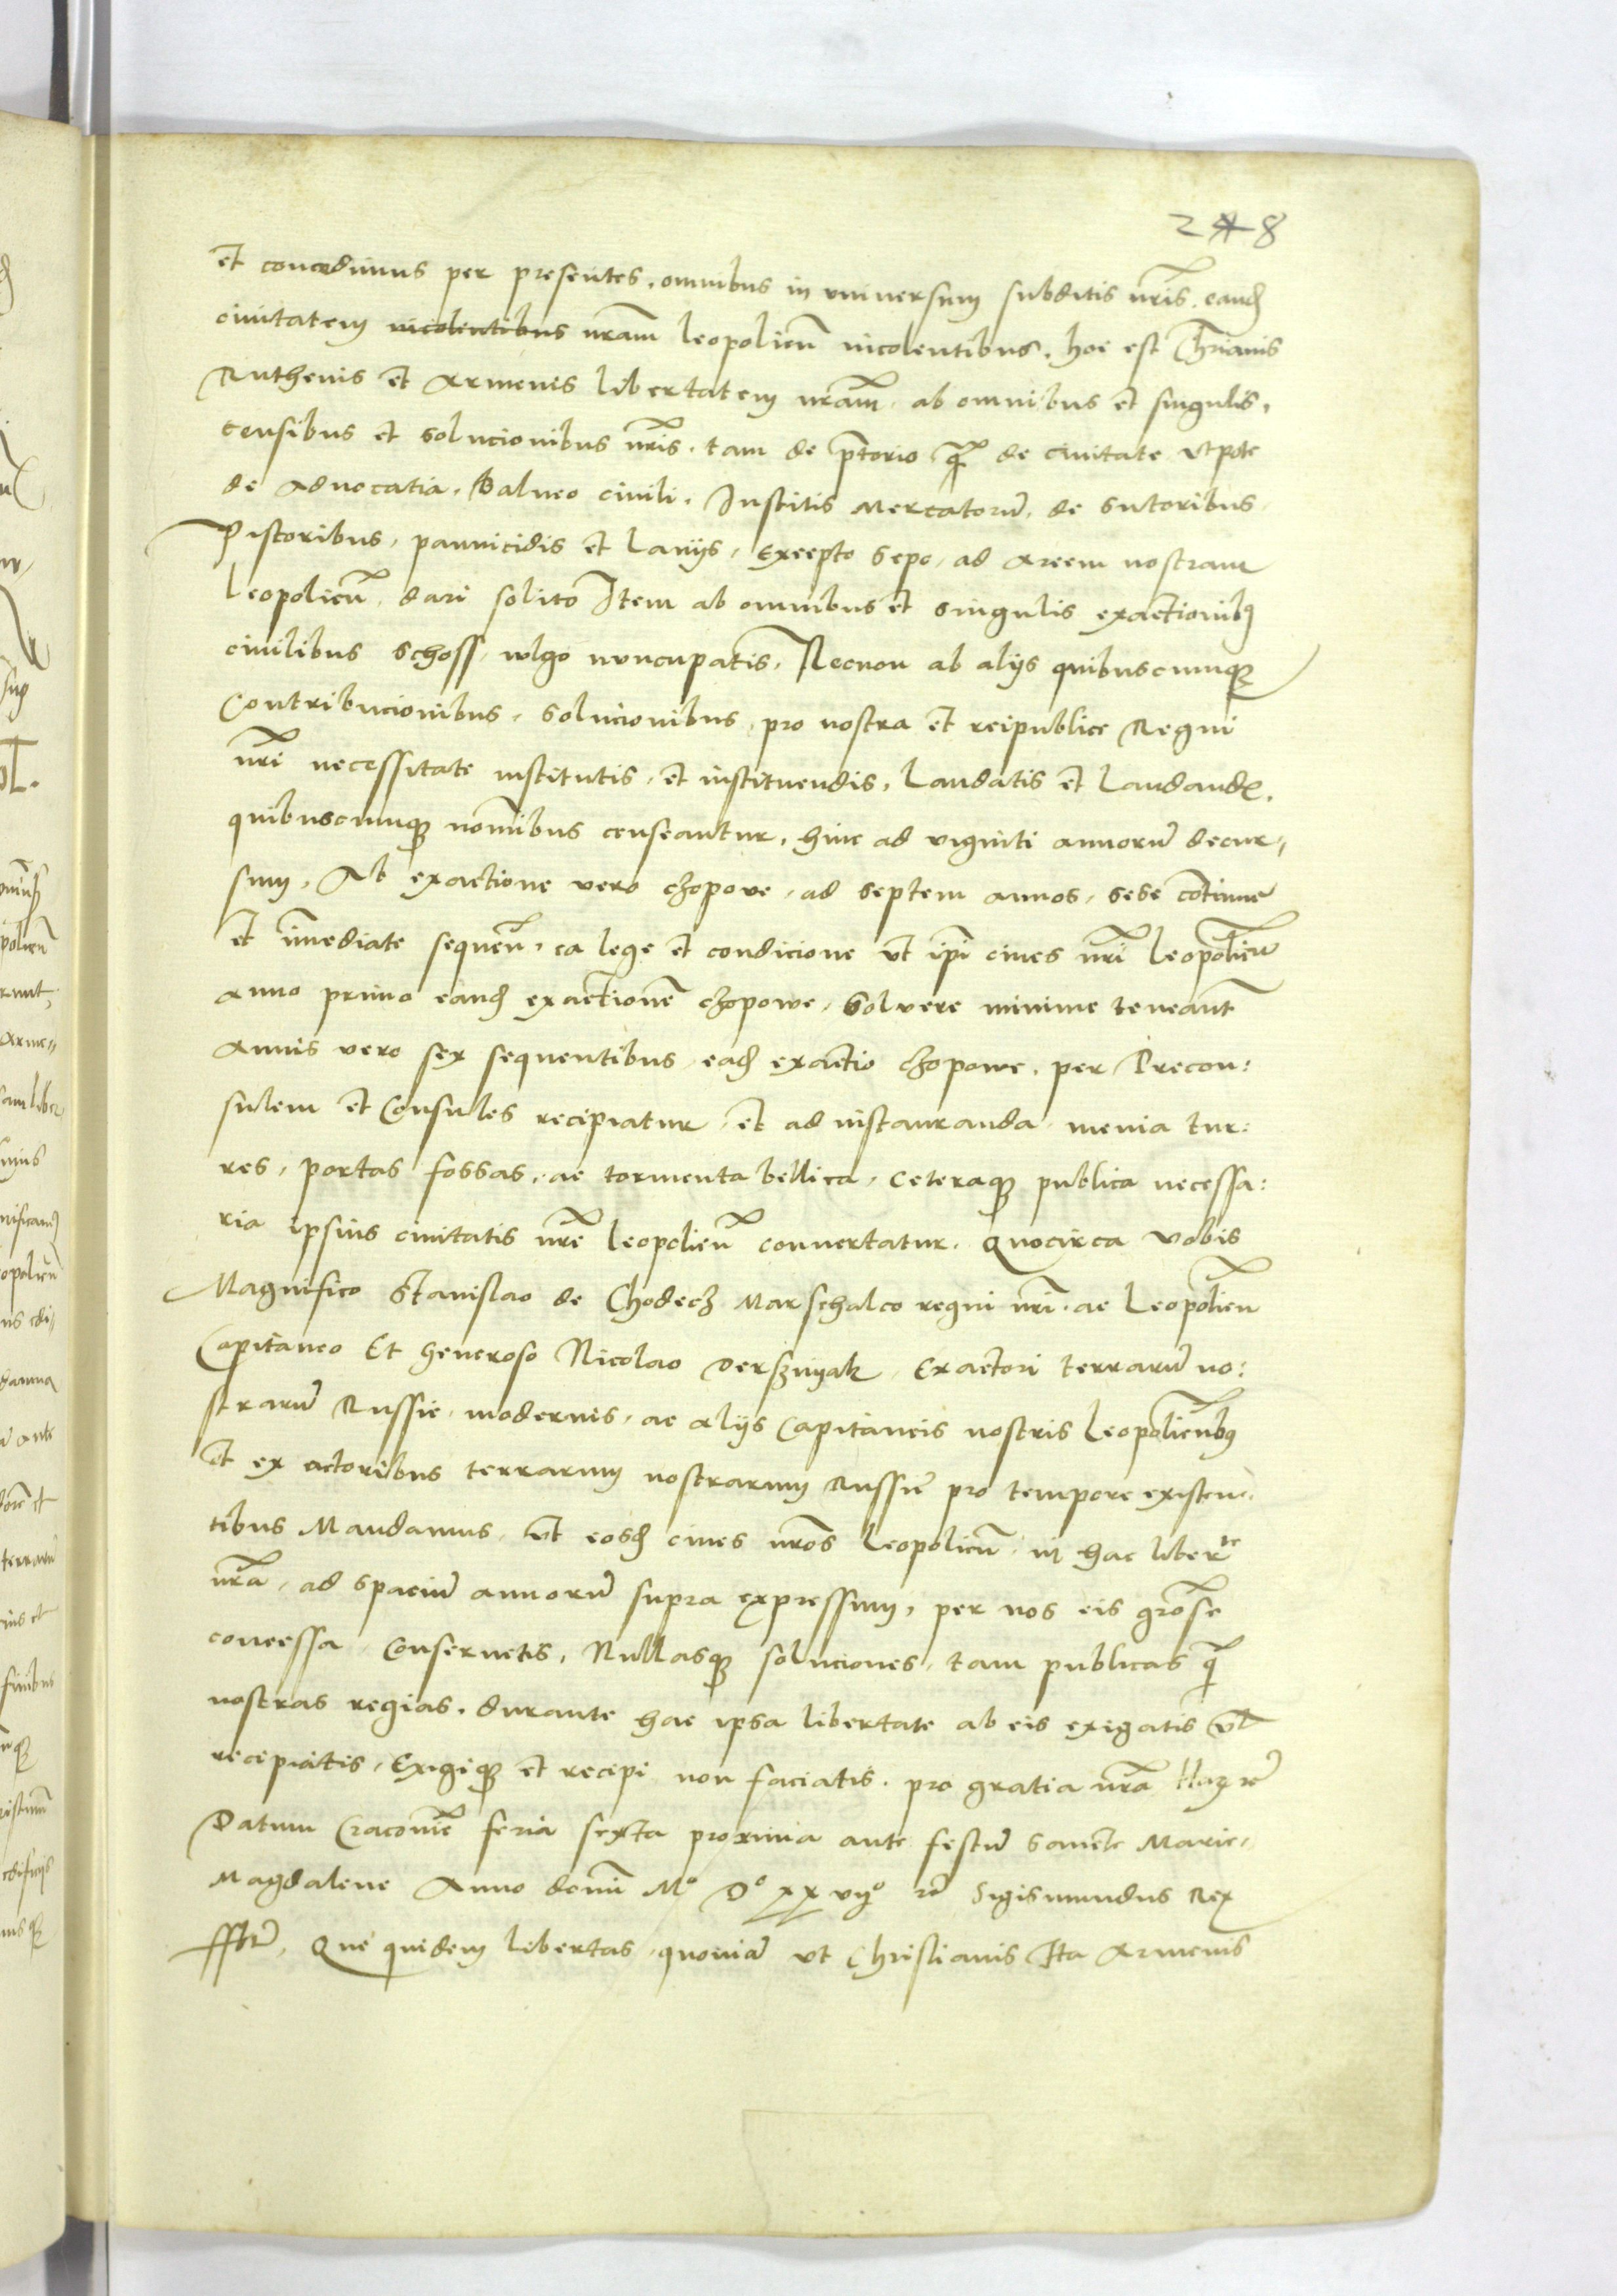 2*8
et concedimus per presentes. omnibus in vniversum subditis nr̃is. eand
ciuitatem incolentibus nr̃am leopolien̄ incolentibus. hoc est Chr̃ianis
Ruthenis et Armenis libertatem nr̃am. ab omnibus et singulis.
censibus et solucionibus nr̃is. tam de p̄torio q̃ de ciuitate vtpote
de aduocatia. Balneo ciuili. Institis Mercatorū. de sutoribus.
Pistoribus, pannicidis et Lanijs, Excepto sepo, ad arcem nostram
leopolien̄ dari solito Item ab omnibus et singulis exactionib3
ciuilibus schoss. wlgo nuncupatis. Necnon ab alijs quibuscunq3
Contribucionibus. Solucionibus. pro nostra et reipublice Regni
nr̃i necessitate institutis, et instituendis, laudatis et laudand.
quibuscunq3 nom̄ibus censeantur, hinc ad viginti annorū decur,
sum, Ab exactione vero czopove, ad septem annos, sese cōtinue
et īmediate sequen̄. ea lege et condicione vt ip̄i ciues nr̃i leopolien̄
anno primo eand exactionē czopowe, soluere minime teneant̄
Annis vero sex sequentibus ead exactio czopowe. per Precon:
sulem et Consules recipiatur, et ad instauranda menia tur:
res, portas fossas, ac tormenta bellica, ceteraq3 publica necessa:
ria ipsius ciuitatis nr̃e leopolien̄ conuertatur. Quocirca vobis
Magnifico Stanislao de Chodecz Marschalco regni nr̃i. ac Leopolien̄
Capitaneo Et Generoso Nicolao Exactori terrarū no:
strarū Russie. modernis, ac alijs Capitaneis nostris leopolien̄b9
Et ex actoribus terrarum nostrarum Russie pro tempore existen,
tibus Mandamus, vt eosd ciues nr̃os leopolien̄ in hac liber^te
nr̃a, ad spaciū annorū supra expressum, per nos eis gr̃ose
concessa, Conseruetis, Nullasq3 soluciones, tam publicas q̃
nostras regias. durante hac ipsa libertate ab eis exigatis vl̄
recipiatis, Exigiq3 et recipi non faciatis. pro gratia nr̃a
Datum Cracouie feria sexta proxima ante festū sancte Marie,
Magdalene Anno domī M° D° xx vij° Sigismundus Rex
Que quidem libertas quoniā vt Christianis Ita Armenis